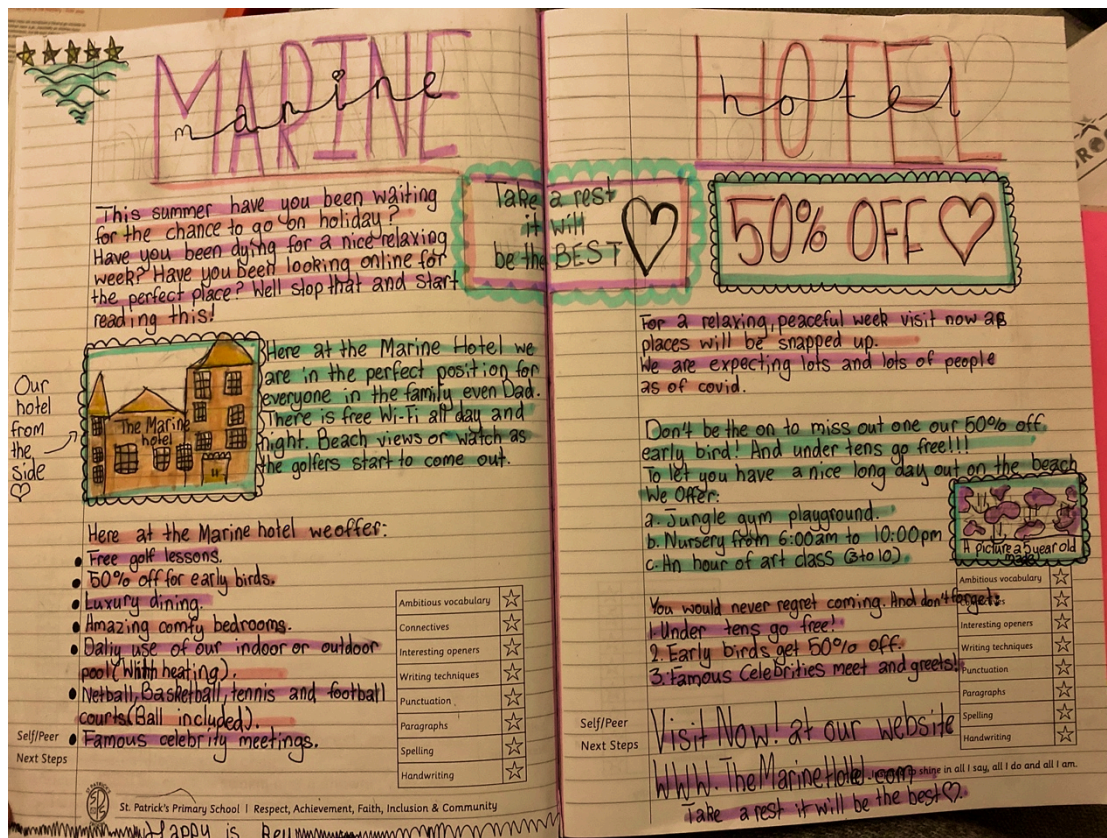 MARINE
marine
This summer have you been waiting
for the chance to go on holiday?
Have you been dying for a nice relaxing
week? Have you been looking online for
the perfect place? Well stop that and start
reading this!
Our
hotel
from
the
side
The Marine
hotel
Here at the Marine Hotel we
are in the perfect position for
everyone in the family even Dad.
There is free Wi-Fi all day and
night. Beach views or watch as
the golfers start to come out.
Here at the Marine hotel we offer:
• Free golf lessons.
• 50% off for early birds.
• Luxury dining.
• Amazing comfy bedrooms.
• Daliy use of our indoor or outdoor
pool (With heating).
• Netball, Basketball, tennis and football
courts (Ball included).
• Famous celebrity meetings.
Self/Peer
Next Steps
Ambitious vocabulary
Connectives
Interesting openers
Writing techniques
Punctuation
Paragraphs
Spelling
Handwriting
St. Patrick's Primary School | Respect, Achievement, Faith, Inclusion & Community
Happy is key
Take a rest
it will
be the BEST
HOTEL
hotel
50% OFF
For a relaxing, peaceful week visit now as
places will be snapped up.
We are expecting lots and lots of people
as of covid.
Don't be the on to miss out one our 50% off
early bird! And under tens go free!!!
To let you have a nice long day out on the beach
We Offer:
a. Jungle gym playground.
b. Nursery from 6:00am to 10:00pm
c. An hour of art class (3 to 10)
A picture a 5 year old
made
You would never regret coming. And don't forget:
1. Under tens go free!
2. Early birds get 50% off.
3. famous Celebrities meet and greets!
Ambitious vocabulary
Interesting openers
Writing techniques
Punctuation
Paragraphs
Spelling
Handwriting
Self/Peer
Next Steps
Visit Now! at our website
WWW.TheMarineHotel.com
to shine in all I say, all I do and all I am.
Take a rest it will be the best